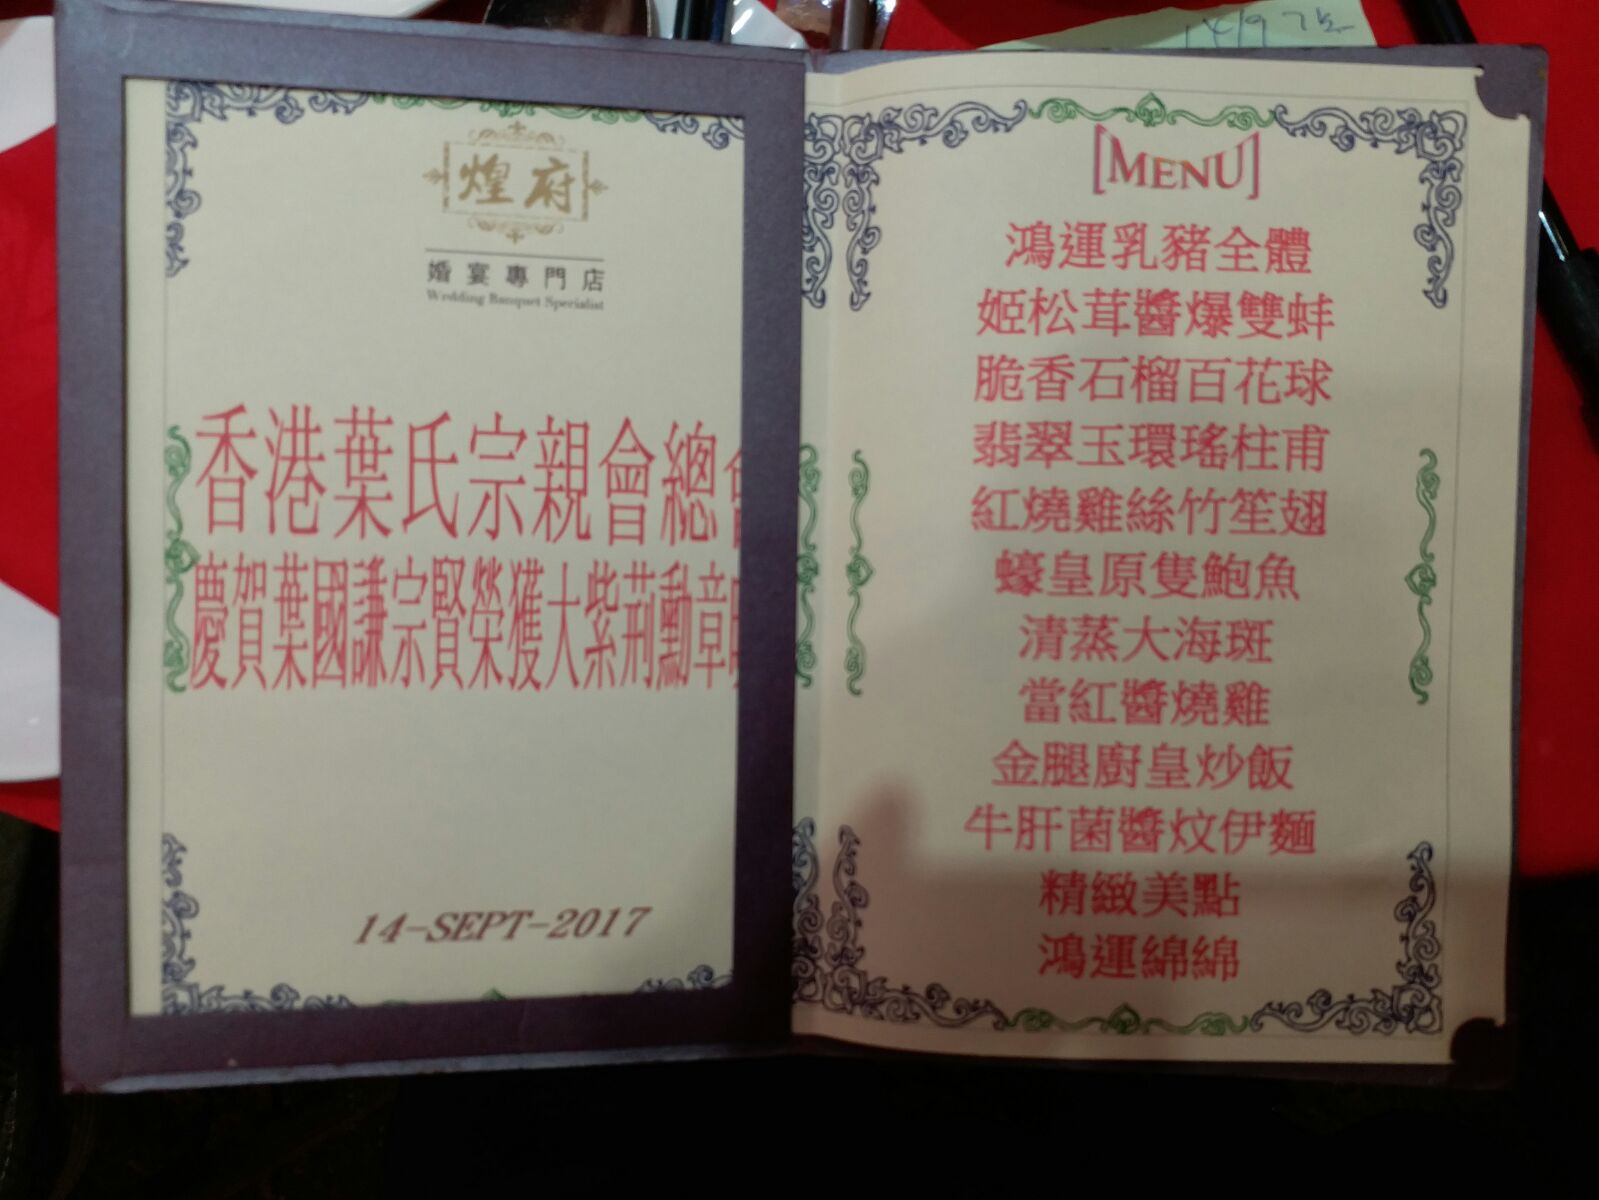 煌府
婚宴專門店
Wedding Banquet Specialist
香港葉氏宗親會總
慶賀葉國謙宗賢榮獲大紫荊勳章
14-SEPT-2017
MENU
鴻運乳豬全體
姬松茸醬爆雙蚌
脆香石榴百花球
翡翠玉環瑤柱甫
紅燒雞絲竹笙翅
蠔皇原隻鮑魚
清蒸大海斑
當紅醬燒雞
金腿廚皇炒飯
牛肝菌醬炆伊麵
精緻美點
鴻運綿綿